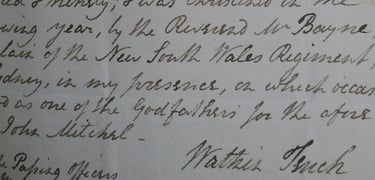 I was christened in the
wing year, by the Reverend Mr Bayne,
lain of the New South Wales Regiment,
dney, in my presence, on which occas
d as one of the Godfathers for the afore
John Mitchel -
Watkin Tench
e Passing Officers